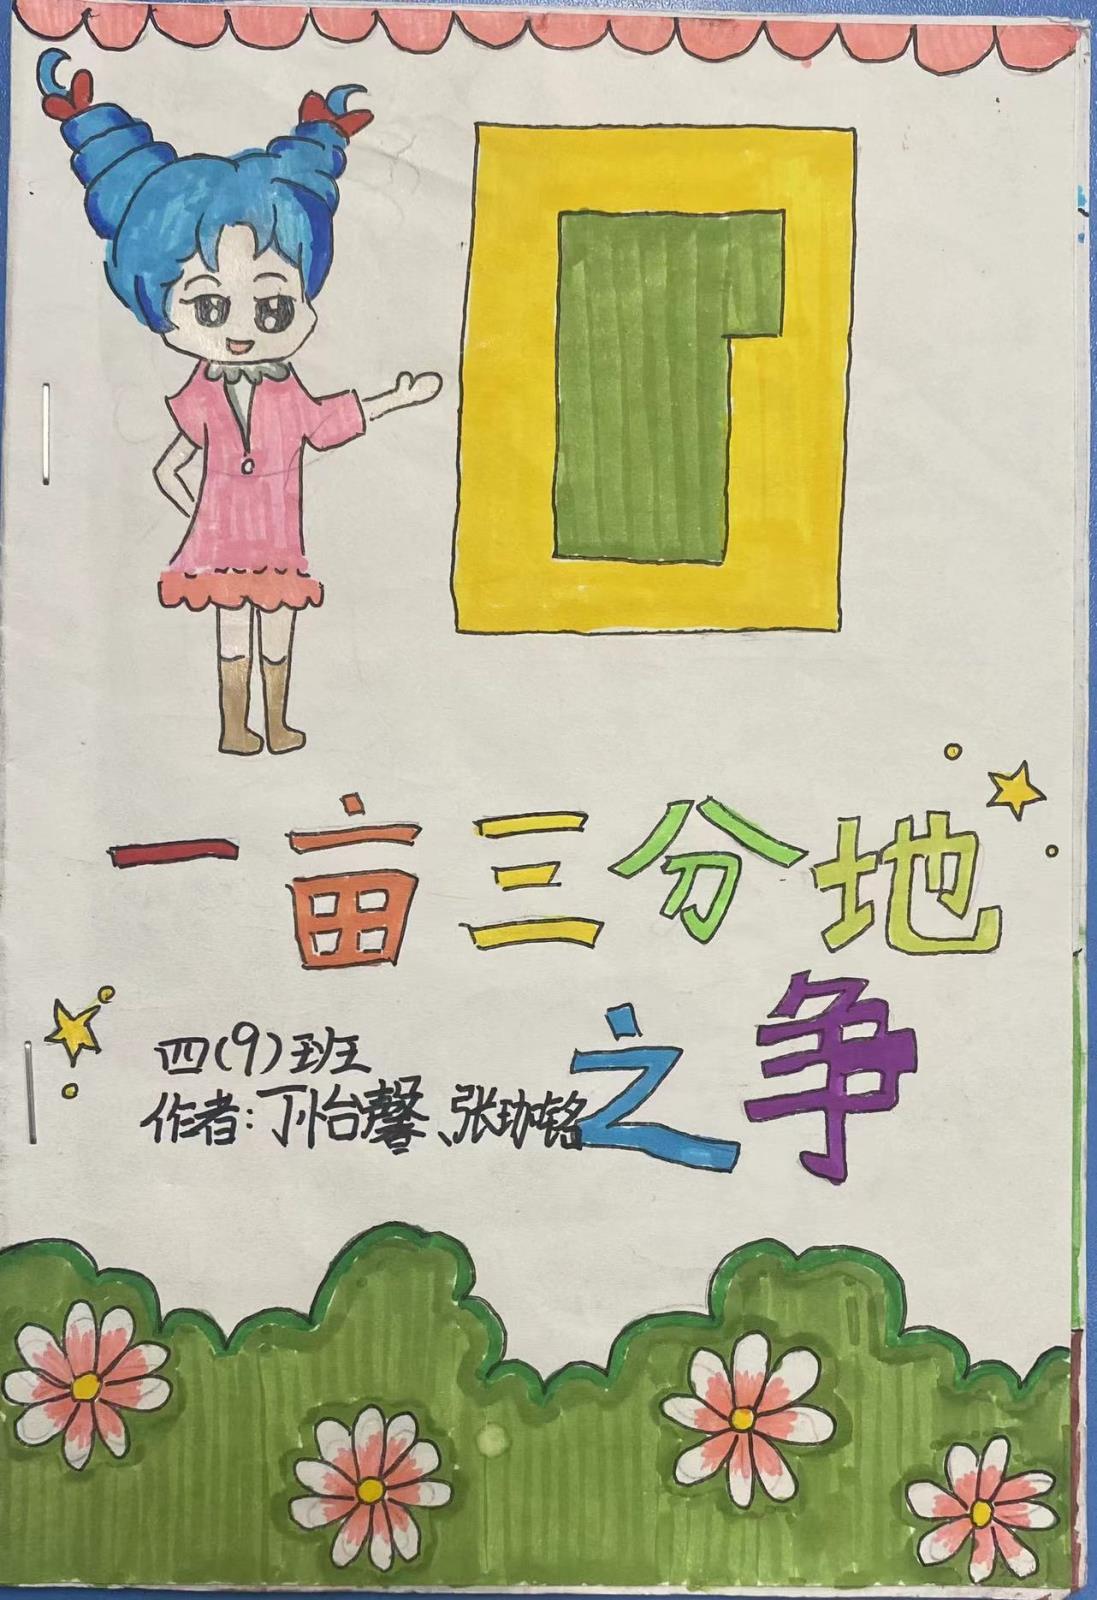 一亩三分地
之争
四(9)班
作者:丁怡馨、张珈铭